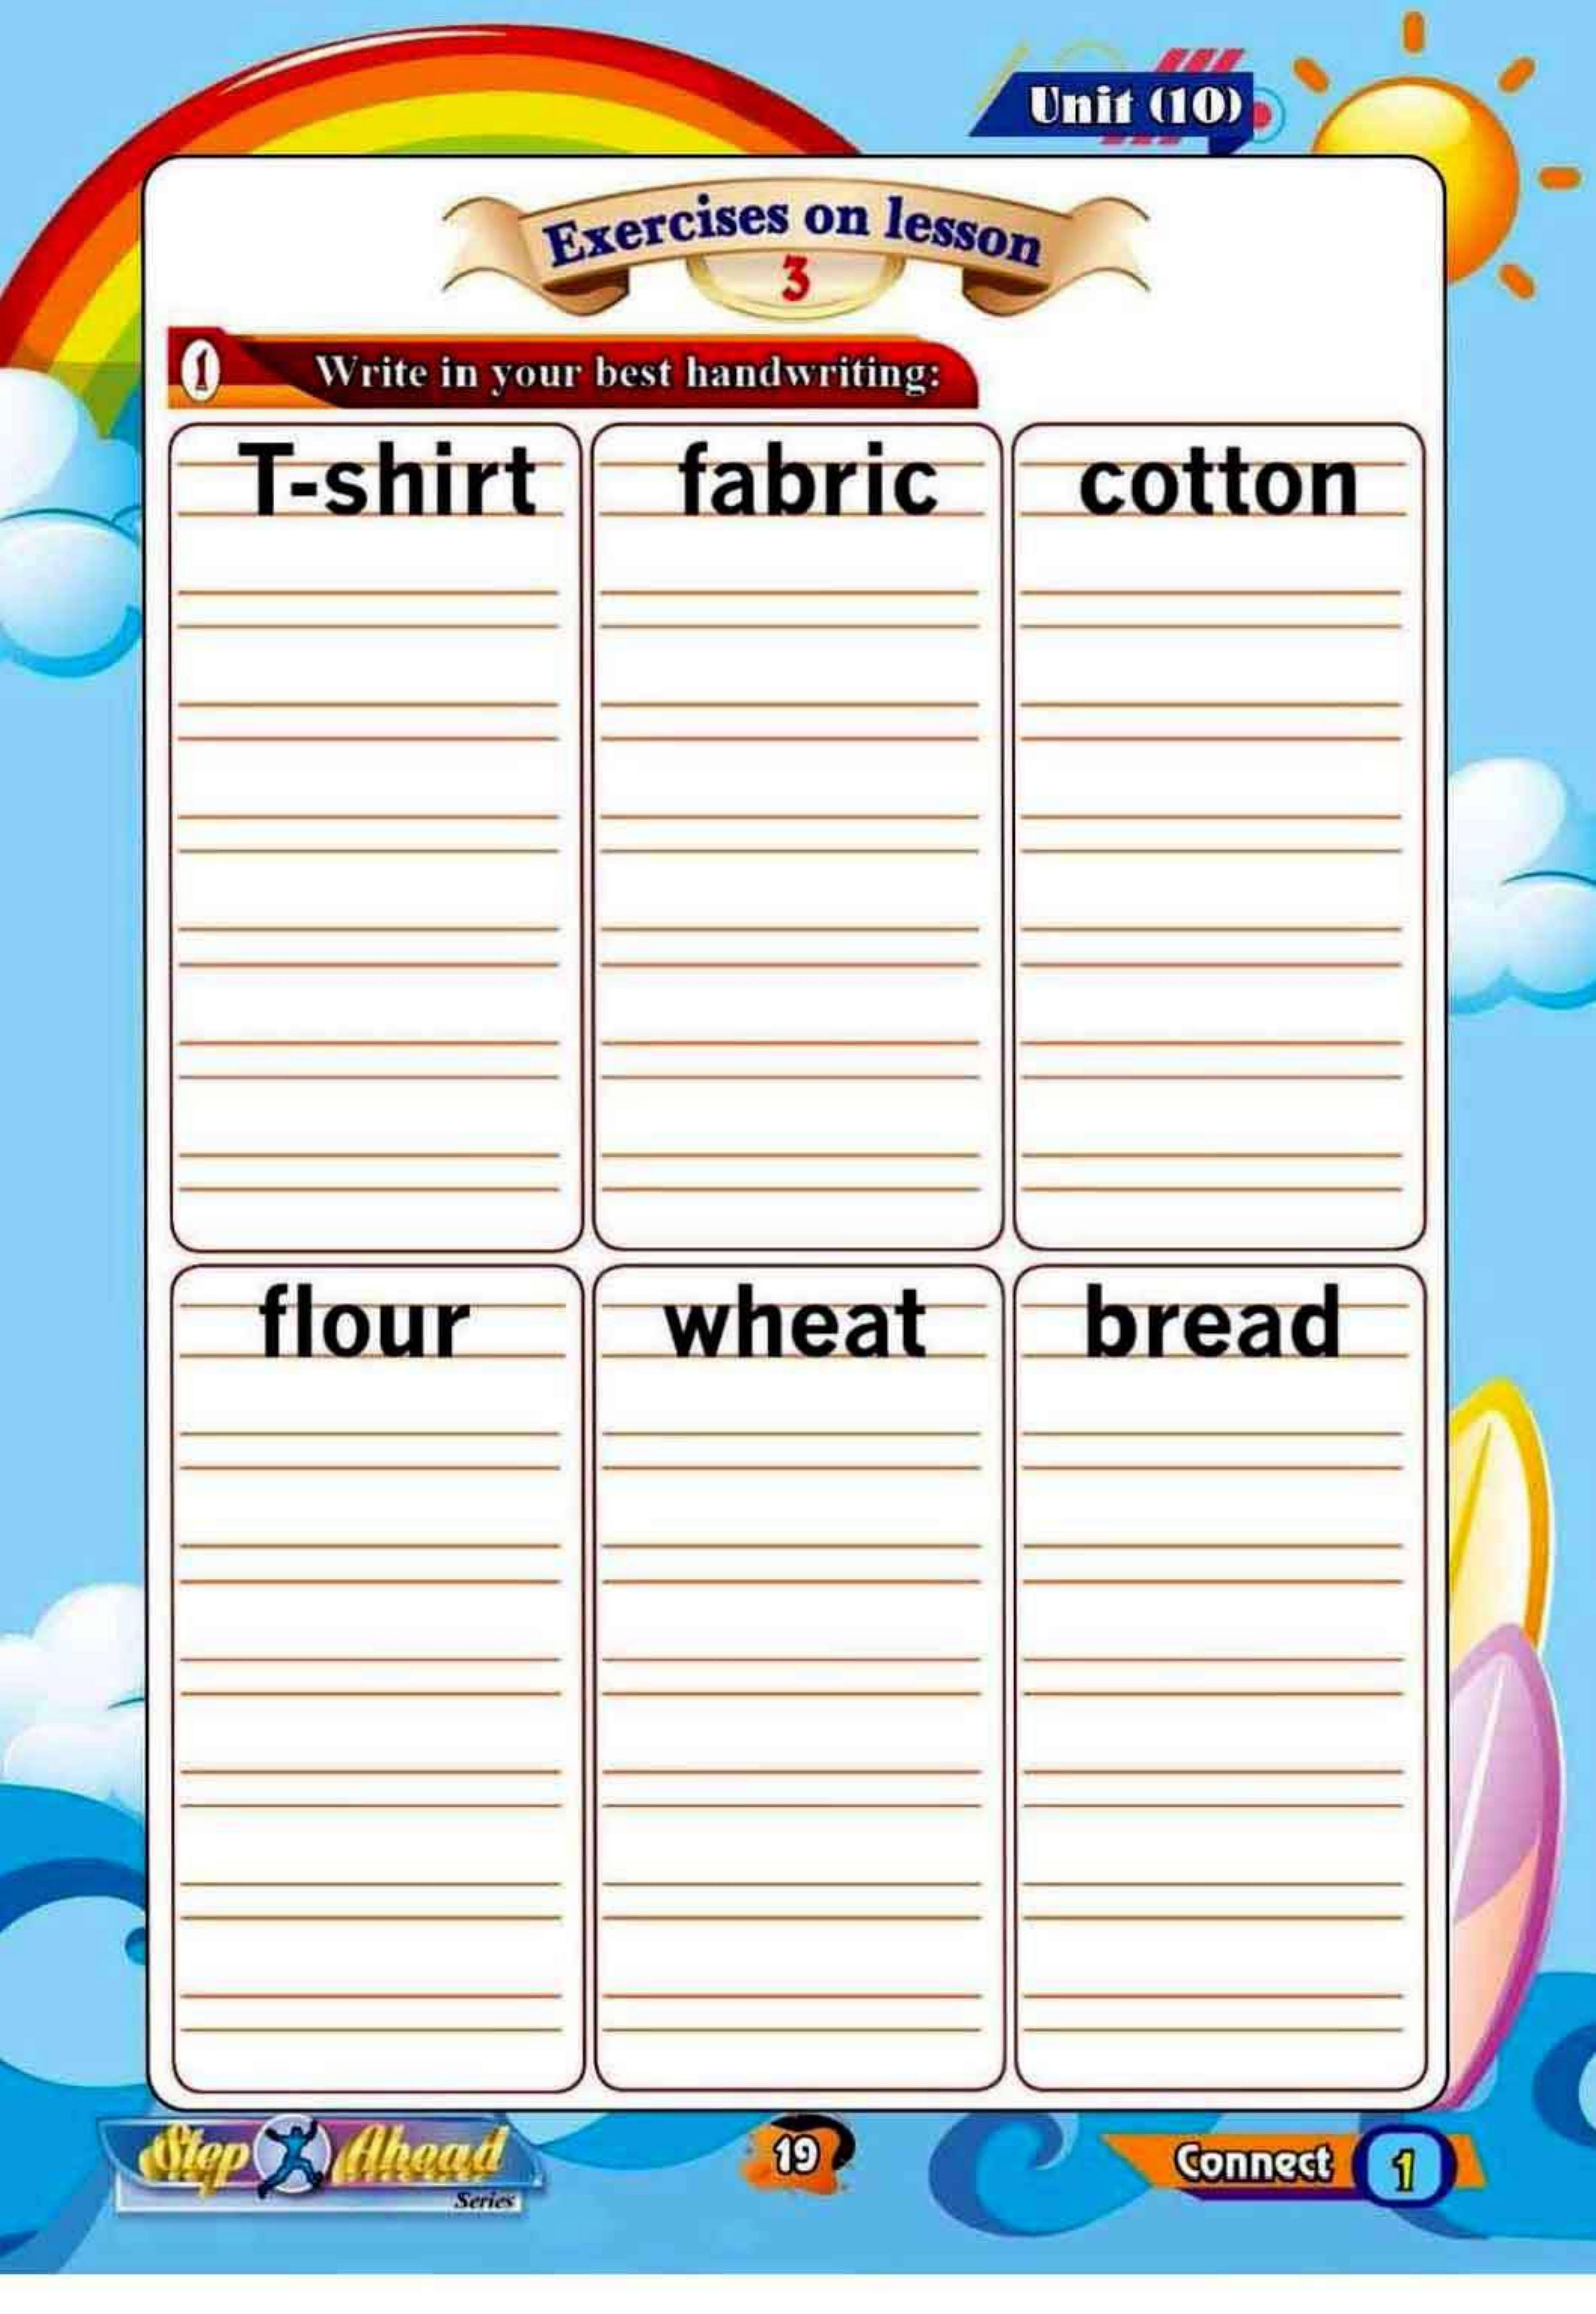 Unit (10)
Exercises on lesson
3
1 Write in your best handwriting:
T-shirt fabric cotton
flour wheat bread
Step Ahead
Series
19
Connect 1